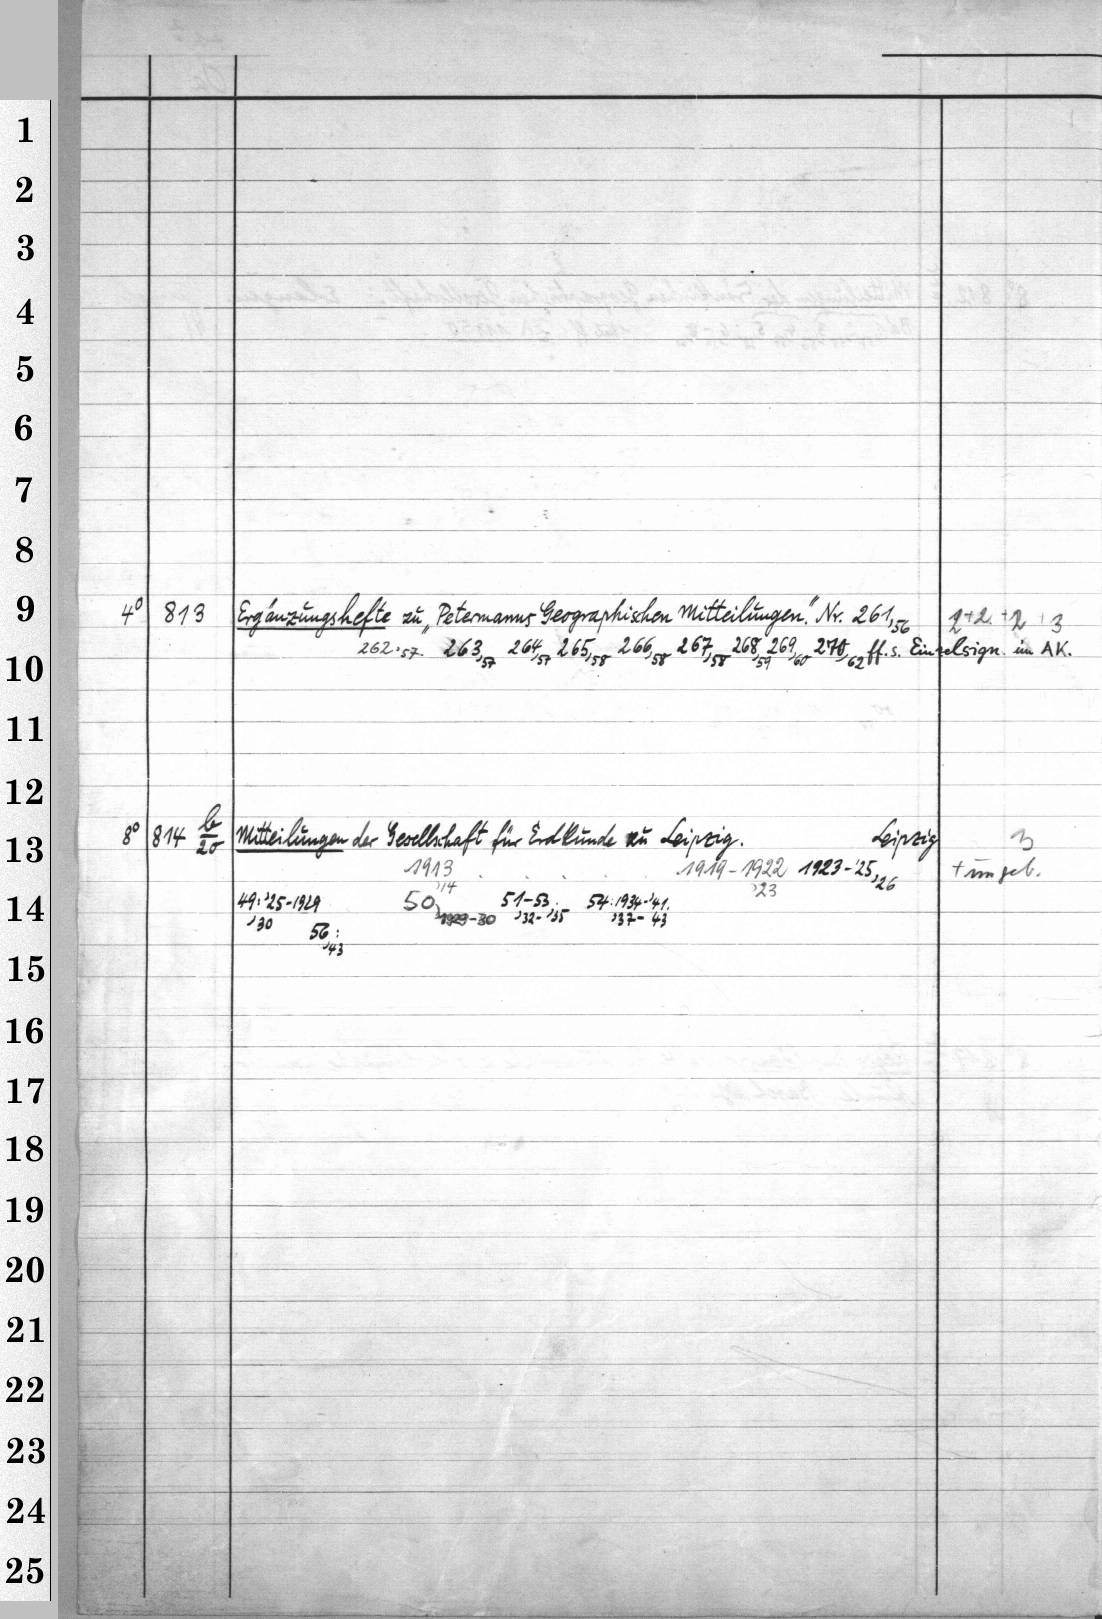 1
2
3
4
5
6
7
8
9 4° 813 Ergänzungshefte zu „Petermanns Geographischen Mitteilungen." Nr. 261,56 2+2 +2 +3
262,57. 263,57 264,57 265,58 266,58 267,58 268,59 269,60 270,62 ff. s. Einzelsign. im AK.
10
11
12
13 8° 814 b/20 Mitteilungen der Gesellschaft für Erdkunde zu Leipzig. Leipzig 3
1913,14 . . . . . 1919-1922,23 1923-'25,26 + ungeb.
14 49:'25-1929,30 50,1929-30 51-53,'32-'35 54:1934-'41,'37-43
56:,43
15
16
17
18
19
20
21
22
23
24
25